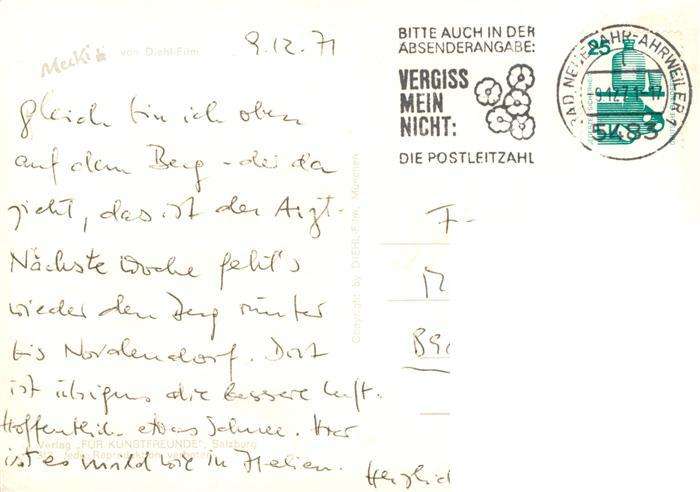 Mecki von Diehl-Film
9.12.71
BITTE AUCH IN DER
ABSENDERANGABE:
VERGISS
MEIN
NICHT:
DIE POSTLEITZAHL
25
BAD NEUENAHR-AHRWEILER 1
9.12.71-17
5483
Gleich bin ich oben
auf dem Berg - der da
zieht, das ist der Arzt.
Nächste Woche geht's
wieder den Berg runter
bis Norddendorf. Dort
ist übrigens die bessere Luft.
Hoffentlich etwas Schnee. Hier
ist es mild wie in Italien. Herzlich
Verlag "FÜR KUNSTFREUNDE", Salzburg
Jede Reproduktion verboten
Copyright by DIEHL-Film, München
F-